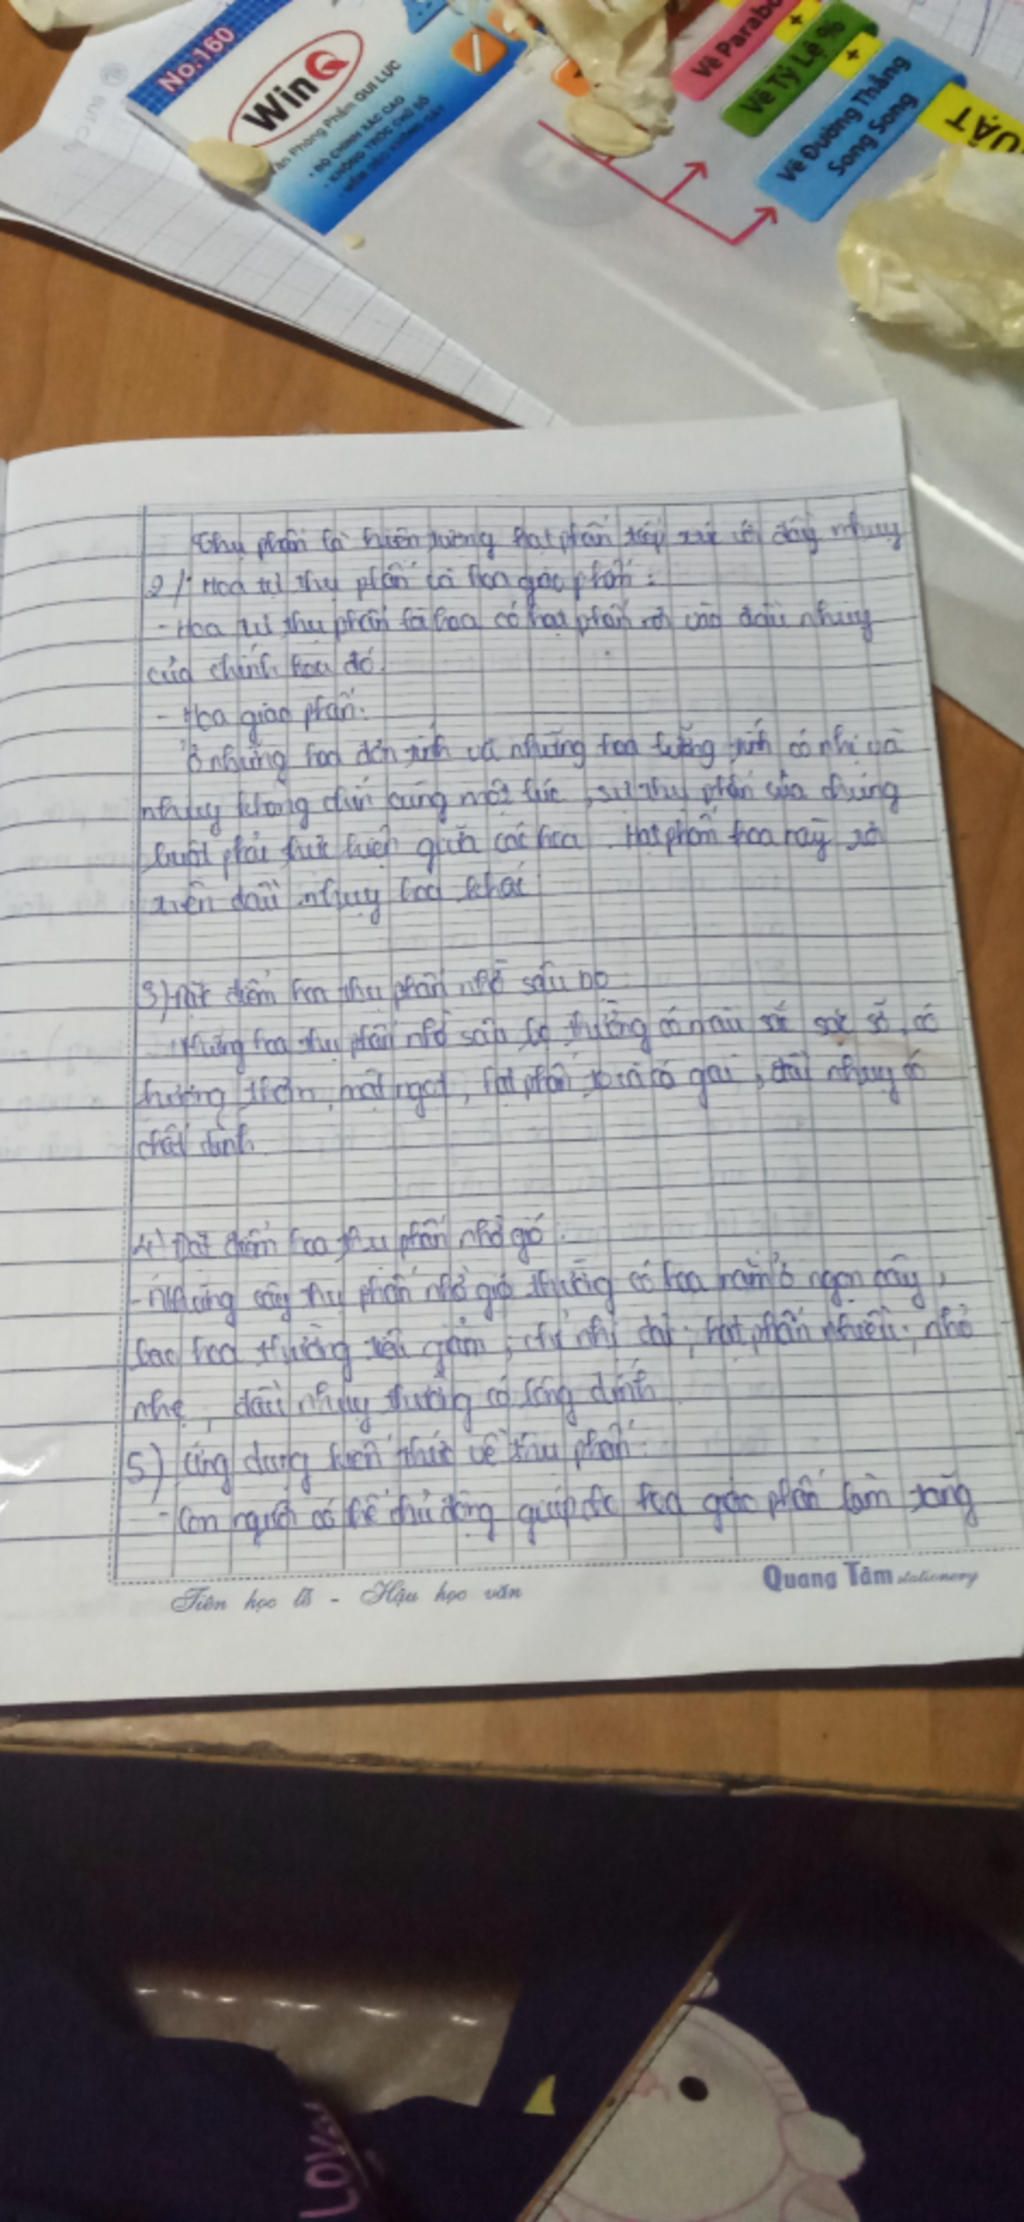 No.160
WinQ
Văn Phòng Phẩm QUI LỰC
• ĐỘ CHÍNH XÁC CAO
• KHÔNG TRÓC CHỮ SỐ
Vẽ Parabo
+
Vẽ Tỷ Lệ %
+
Vẽ Đường Thẳng
Song Song
UẬT
Thụ phấn là hiện tượng hạt phấn tiếp xúc với đầy nhuỵ
2) Hoa tự thụ phấn và hoa giao phấn:
- Hoa tự thụ phấn là hoa có hạt phấn rơi vào đầu nhuỵ
của chính hoa đó.
- Hoa giao phấn:
Ở những hoa đơn tính và những hoa lưỡng tính có nhị và
nhuỵ không chín cùng một lúc, sự thụ phấn của chúng
buột phải thực hiện giữa các hoa. Hạt phấn hoa này rơi
trên đầu nhuỵ hoa khác
3) Đặc điểm hoa thụ phấn nhờ sâu bọ
Những hoa thụ phấn nhờ sâu bọ thường có màu sắc sặc sỡ, có
hương thơm, mật ngọt, hạt phấn to và có gai, đầu nhuỵ có
chất dính.
4) Đặc điểm hoa thụ phấn nhờ gió.
- Những cây thụ phấn nhờ gió thường có hoa nằm ở ngọn cây,
bao hoa thường tiêu giảm, chỉ nhị dài, hạt phấn nhiều, nhỏ
nhẹ, đầu nhuỵ thường có lông dính
5) Ứng dụng kiến thức về thụ phấn:
- Con người có thể chủ động giúp hoa giao phấn làm tăng
Tiên học lễ - Hậu học văn
Quang Tâm stationery
LOV